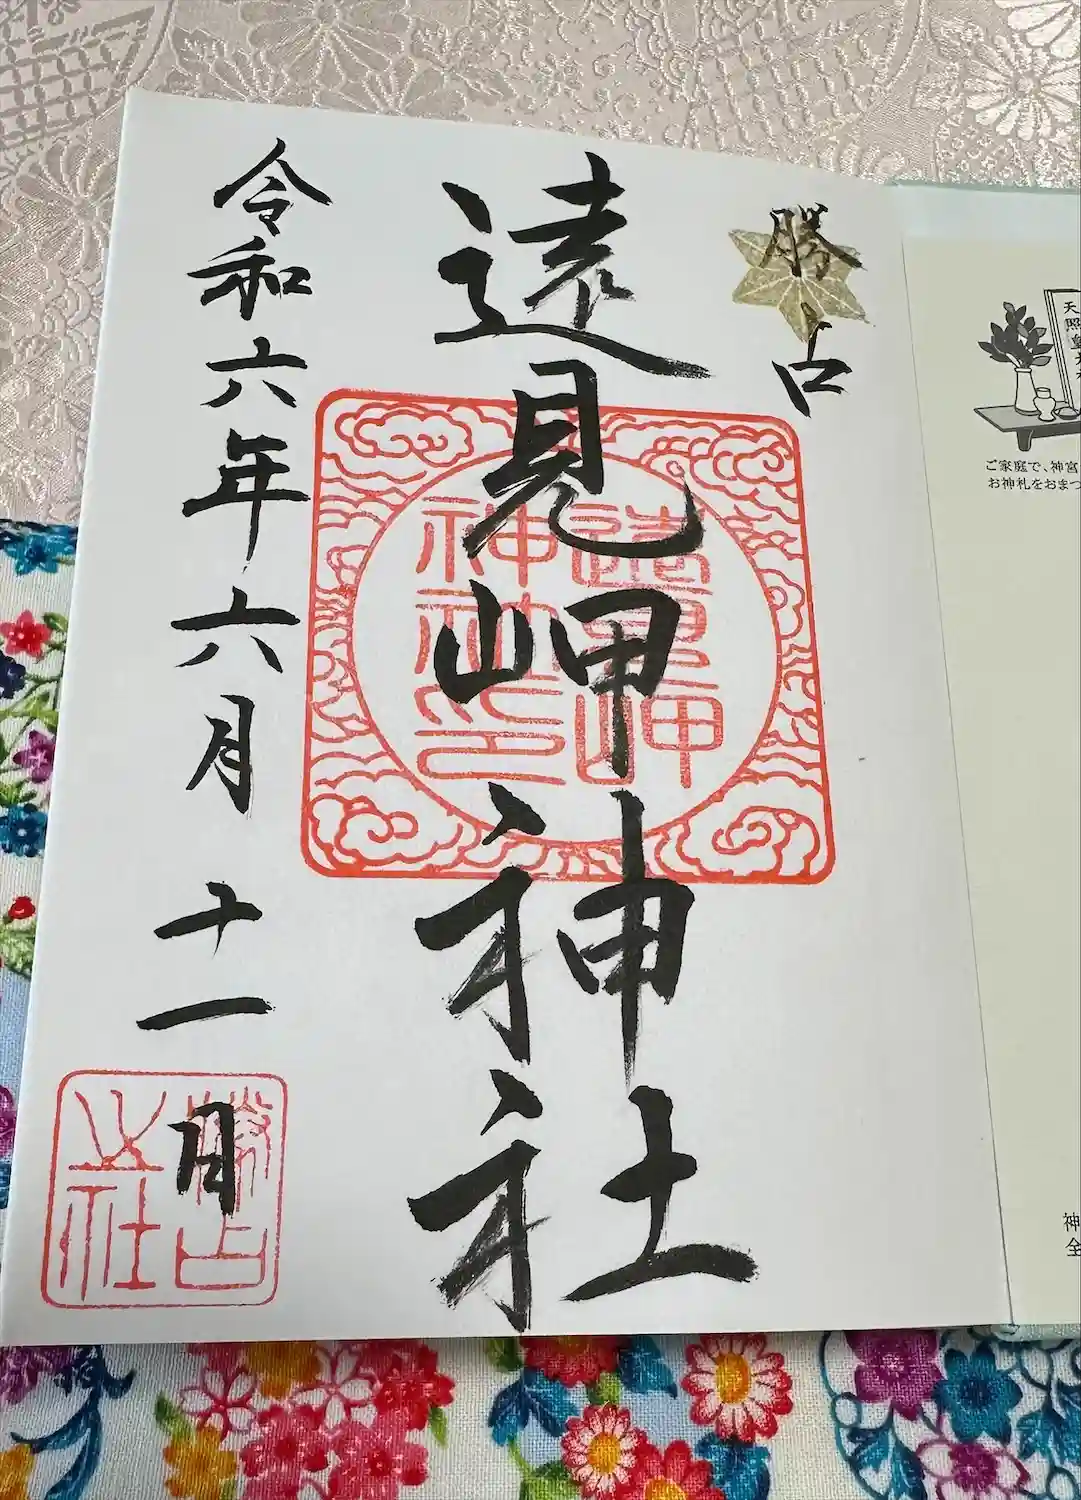 勝占
遠見岬神社
令和六年六月十一日
遠見岬
神社印
勝占
之社
天照皇大
ご家庭で、神宮
お神札をおまつ
神
全